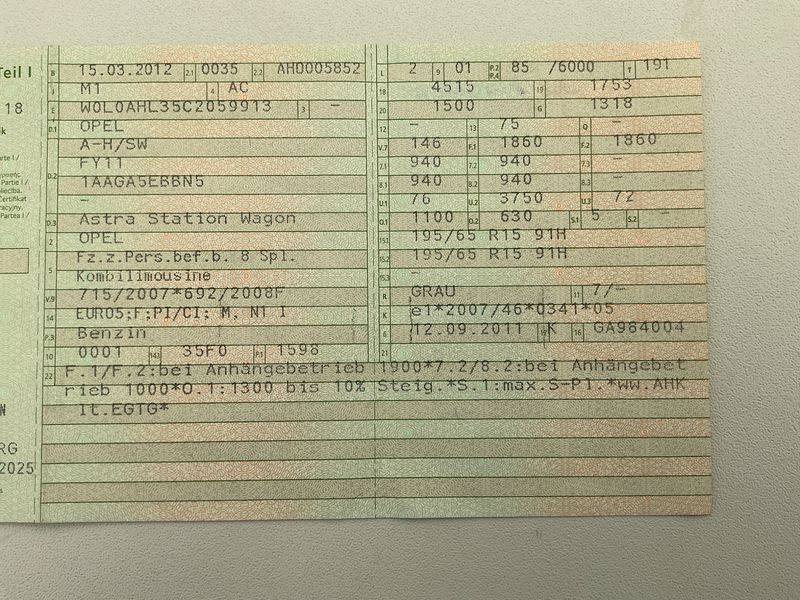 Teil I
B 15.03.2012 2.1 0035 2.2 AHD005852 L 2 9 01 P.2 P.4 85 /6000 T 191
J M1 4 AC 18 4515 19 1753
18 E W0L0AHL35C2059913 3 – 20 1500 G 1318
D.1 OPEL 12 – 13 75 Q –
A-H/SW V.7 146 F.1 1860 F.2 1860
FY11 7.1 940 7.2 940 7.3 –
Partie I / D.2 1AAGA5EBBN5 8.1 940 8.2 940 8.3 –
Certifikat – U.1 76 U.2 3750 U.3 72
Partea I / D.3 Astra Station Wagon O.1 1100 O.2 630 S.1 5 S.2 –
2 OPEL 15.1 195/65 R15 91H
5 Fz.z.Pers.bef.b. 8 Spl. 15.2 195/65 R15 91H
Kombilimousine 15.3 –
V.9 715/2007*692/2008F R GRAU 11 7/–
14 EURO5;F;PI/CI; M, N1 I K e1*2007/46*0341*05
P.3 Benzin 6 12.09.2011 17 K 16 GA984004
10 0001 14.1 35F0 P.1 1598 21
22 F.1/F.2:bei Anhängebetrieb 1900*7.2/8.2:bei Anhängebet
rieb 1000*O.1:1300 bis 10% Steig.*S.1:max.S-Pl.*ww.AHK
N lt.EGTG*
RG
2025